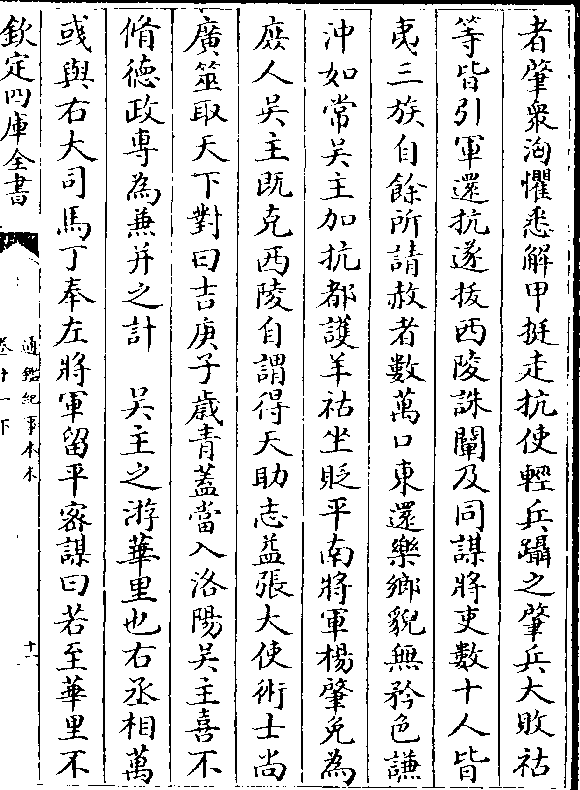 者肇衆洶懼悉解甲挺走抗使輕兵躡之肇兵大敗祜
等皆引軍還抗遂拔西陵誅闡及同謀將吏數十人皆
夷三族自餘所請赦者數萬口東還樂鄉貌無矜色謙
沖如常吳主加抗都護羊祜坐貶平南將軍楊肇免為
庶人吳主既克西陵自謂得天助志益張大使術士尚
廣筮取天下對曰吉庚子歲青蓋當入洛陽吳主喜不
脩德政專為兼并之計　吳主之游華里也右丞相萬
彧與右大司馬丁奉左將軍留平密謀曰若至華里不
欽定四庫全書
通鑑紀事本末
卷十一下
十一